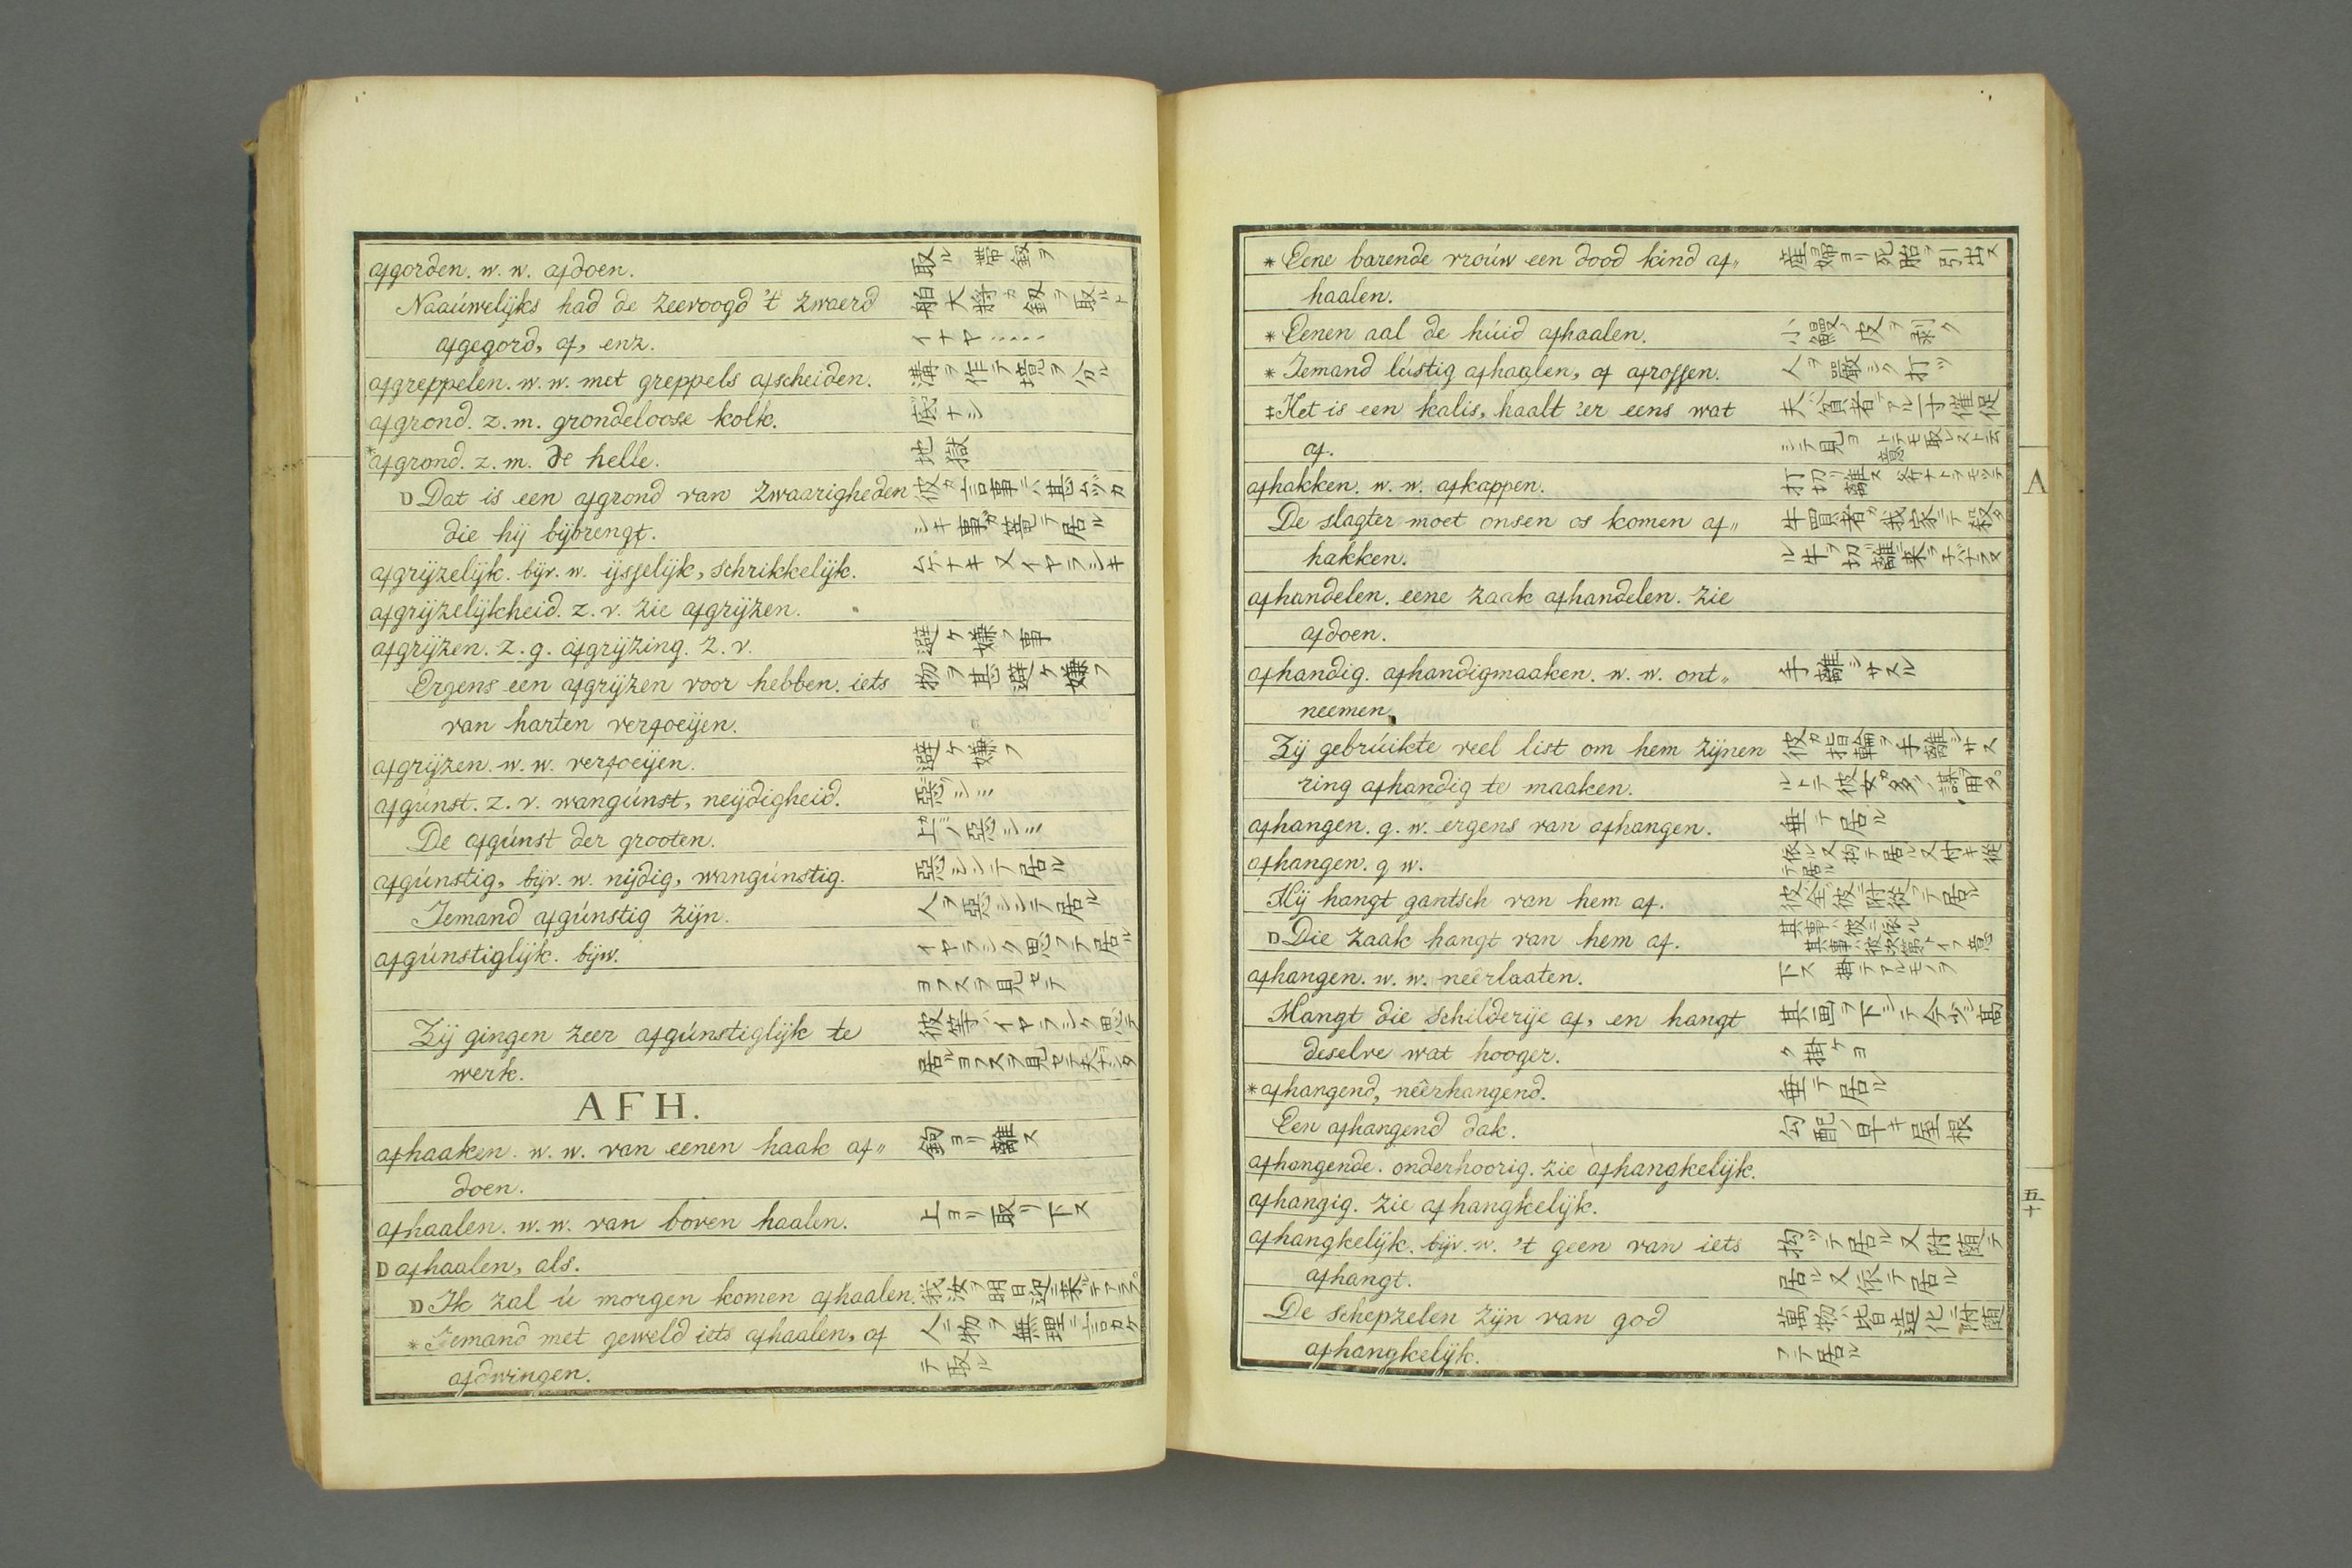 afgorden. w. w. afdoen. 取ル 帯釼ヲ
Naaúwelijks had de zeevoogd 't zwaerd 舶大将ガ釼ヲ取ルト
afgegord, of, enz. イナヤ.....
afgreppelen. w. w. met greppels afscheiden. 溝ヲ作テ境ヲ分ル
afgrond. z. m. grondeloose kolk. 底ナシ
*afgrond. z. m. de helle. 地獄
D Dat is een afgrond van zwaarigheden 彼ガ言事ニハ甚ムヅカ
die hij bijbrengt. シキ事ガ篭テ居ル
afgrijzelijk. bijv. w. ijsselijk, schrikkelijk. ムゲナキ又イヤラシキ
afgrijzelijkheid. z. v. zie afgrijzen.
afgrijzen. z. g. afgrijzing. z. v. 避ケ嫌フ事
Ergens een afgrijzen voor hebben. iets 物ヲ甚避ケ嫌フ
van harten verfoeijen.
afgrijzen. w. w. verfoeijen. 避ケ嫌フ
afgúnst. z. v. wangúnst, neijdigheid. 惡シミ
De afgúnst der grooten. 上ノ惡シミ
afgúnstig, bijv. w. nijdig, wangúnstig. 惡シンテ居ル
Iemand afgúnstig zijn. 人ヲ惡シンテ居ル
afgúnstiglijk. bijw. イヤラシク思フテ居ル
ヨフスヲ見セテ
Zij gingen zeer afgúnstiglijk te 彼等ハイヤラシク思テ
werk. 居ルヨフスヲ見セテ
AFH.
afhaaken. w. w. van eenen haak af„ 鉤ヨリ離ス
doen.
afhaalen. w. w. van boven haalen. 上ヨリ取リ下ス
D afhaalen, als.
D Ik zal ú morgen komen afhaalen. 我汝ヲ明日迎ニ来ルデアラフ
* Iemand met geweld iets afhaalen, of 人ニ物ヲ無理ニ言カケ
afdwingen. テ取ル
* Eene barende vroúw een dood kind af„ 産婦ヨリ死胎ヲ引出ス
haalen.
* Eenen aal de húid afhaalen. 小鰻ノ皮ヲ剥ク
* Iemand lústig afhaalen, of afrossen. 人ヲ嚴シク打ツ
‡ Het is een kalis, haalt 'er eens wat 夫ハ貧者デアル一寸催促
af. シテ見ヨ トテモ取レヌト云意
afhakken. w. w. afkappen. 打切リ離ス 斧ナトヲモツテ
De slagter moet onsen os komen af„ 牛買者ガ我家ニテ殺タ
hakken. ル牛ヲ切離ニ来ラ子バナラヌ
afhandelen. eene zaak afhandelen. zie
afdoen.
afhandig. afhandigmaaken. w. w. ont„ 手離シサスル
neemen.
Zij gebrúikte veel list om hem zijnen 彼ガ指輪ヲ手離シサス
ring afhandig te maaken. ルトテ彼女ガ多ノ謀ヲ用タ
afhangen. g. w. ergens van afhangen. 垂テ居ル
afhangen. g. w. 依ル又拘テ居ル又付キ從テ居ル
Hij hangt gantsch van hem af. 彼ハ全ク彼ニ附從ッテ居ル
D Die zaak hangt van hem af. 其事ハ彼ニ依ル 其事ハ彼次第トイフ意
afhangen. w. w. neêrlaaten. 下ス 掛テアルモノヲ
Hangt die schilderije af, en hangt 其画ヲ下シテ今少シ高
deselve wat hooger. ク掛ケヨ
* afhangend, neêrhangend. 垂テ居ル
Een afhangend dak. 勾配ノ早キ屋根
afhangende. onderhoorig. zie afhangkelijk.
afhangig. zie afhangkelijk.
afhangkelijk. bijv. w. 't geen van iets 拘ッテ居ル又附随テ
afhangt. 居ル又依テ居ル
De schepzelen zijn van god 萬物ハ皆造化ニ附随
afhangkelijk. フテ居ル
A
五十